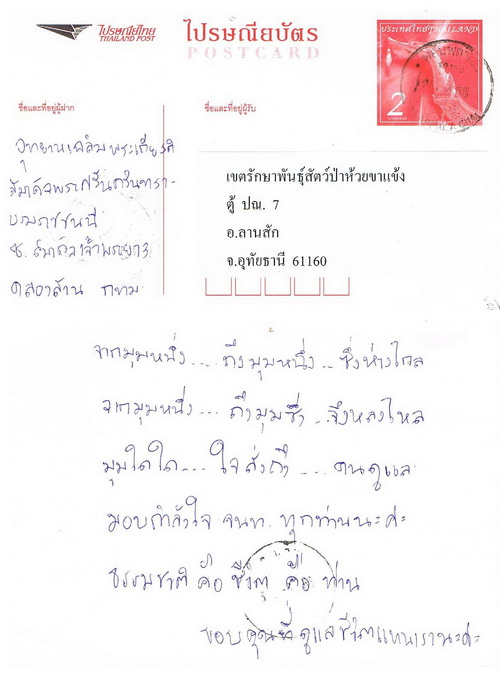 ไปรษณีย์ไทย
THAILAND POST
ไปรษณียบัตร
POSTCARD
ประเทศไทย THAILAND
2
ชื่อและที่อยู่ผู้ฝาก
ชื่อและที่อยู่ผู้รับ
อุทยานเฉลิมพระเกียรติ
สมเด็จพระศรีนครินทรา-
บรมราชชนนี
ถ. สมเด็จเจ้าพระยา 3
คลองสาน กทม
เขตรักษาพันธุ์สัตว์ป่าห้วยขาแข้ง
ตู้ ปณ. 7
อ.ลานสัก
จ.อุทัยธานี 61160
จากมุมหนึ่ง.... ถึงมุมหนึ่ง... ซึ่งห่างไกล
จากมุมหนึ่ง... ถึงมุมซึ่ง... จึงหลงไหล
มุมใดใด.... ใจส่งถึง.... คนดูแล
มอบกำลังใจ จนท. ทุกท่านนะค่ะ
ธรรมชาติ คือ ชีวิต คือ ท่าน
ขอบคุณที่ดูแลชีวิตแทนเรานะค่ะ